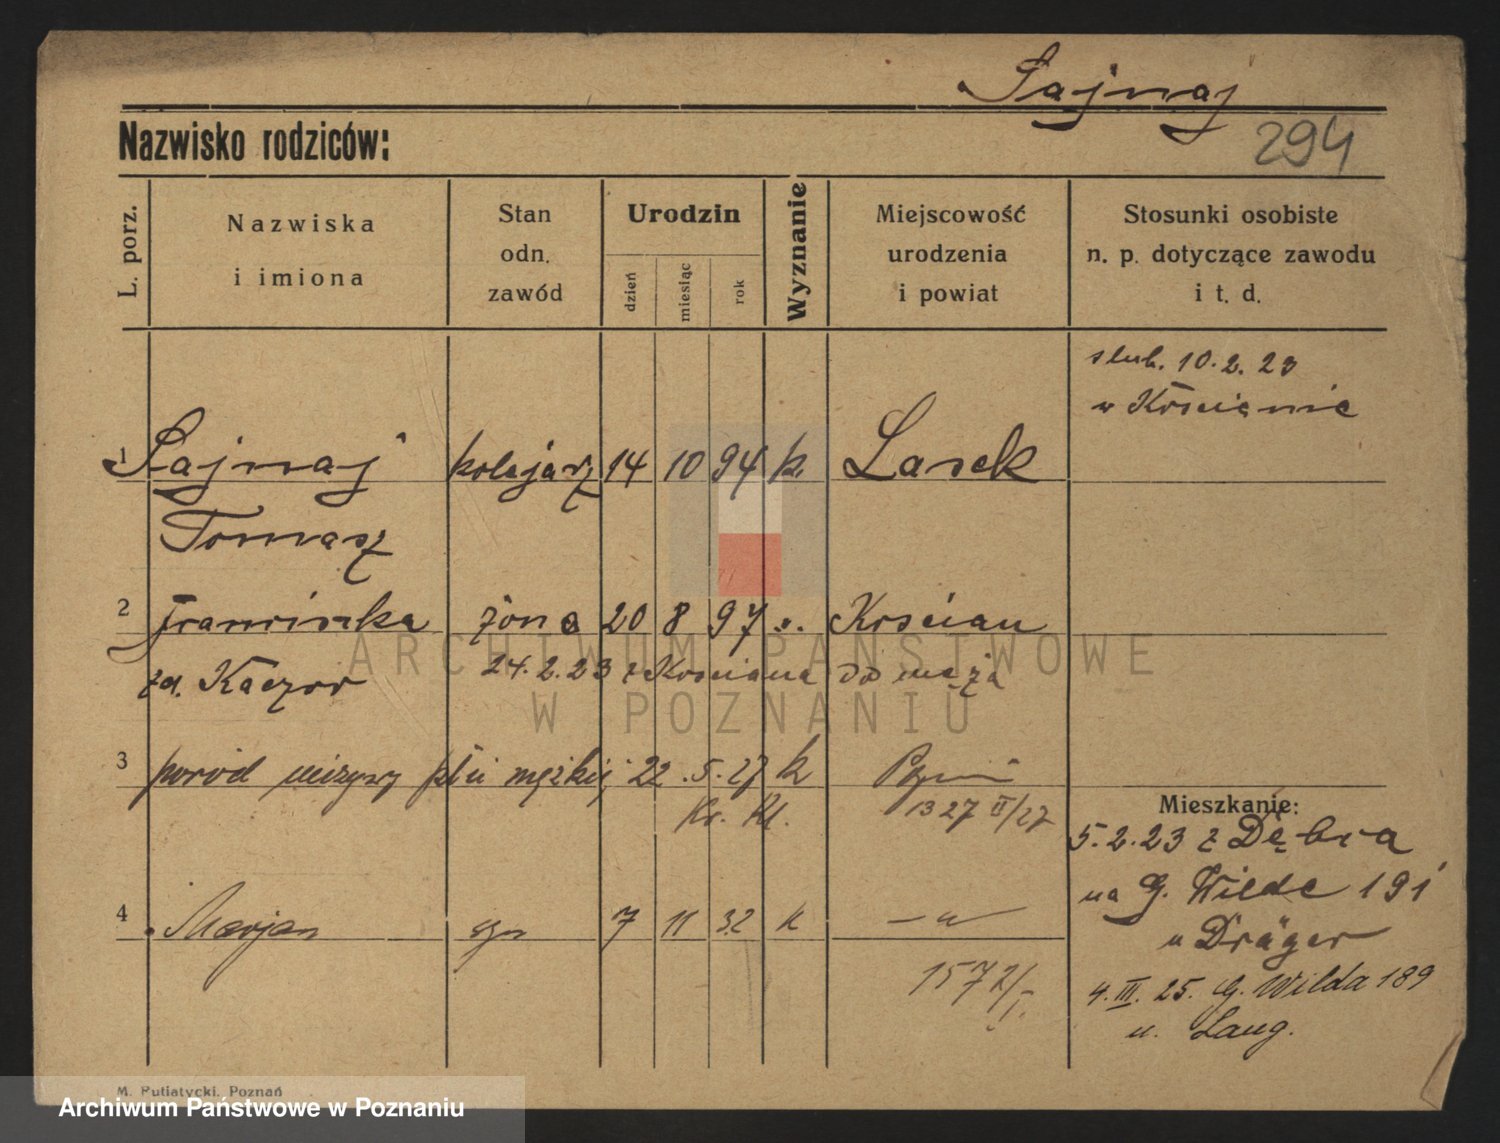 Sajnaj
Nazwisko rodziców:
294
L. porz.
Nazwiska
i imiona
Stan
odn.
zawód
Urodzin
dzień
miesiąc
rok
Wyznanie
Miejscowość
urodzenia
i powiat
Stosunki osobiste
n. p. dotyczące zawodu
i t. d.
ślub. 10.2.23
w Kościanie
1 Sajnaj kolejarz 14 10 94 k. Lasek
Tomasz
2 Franciszka żona 20 8 97 Kościan
zd. Kaczor 24.2.23 z Kościana do męża
ARCHIWUM PAŃSTWOWE
W POZNANIU
3 poród nieżywy płci męzkiej 22.5.27 k
Kr. Kl. 1327 II/27
Mieszkanie:
5.2.23 z Dębca
na G. Wilde 191
u Dräger
4 Marjan syn 7 11 32 k — " —
1572/I.
4. III. 25. G. Wilda 189
u. Lang.
M. Putiatycki, Poznań
Archiwum Państwowe w Poznaniu